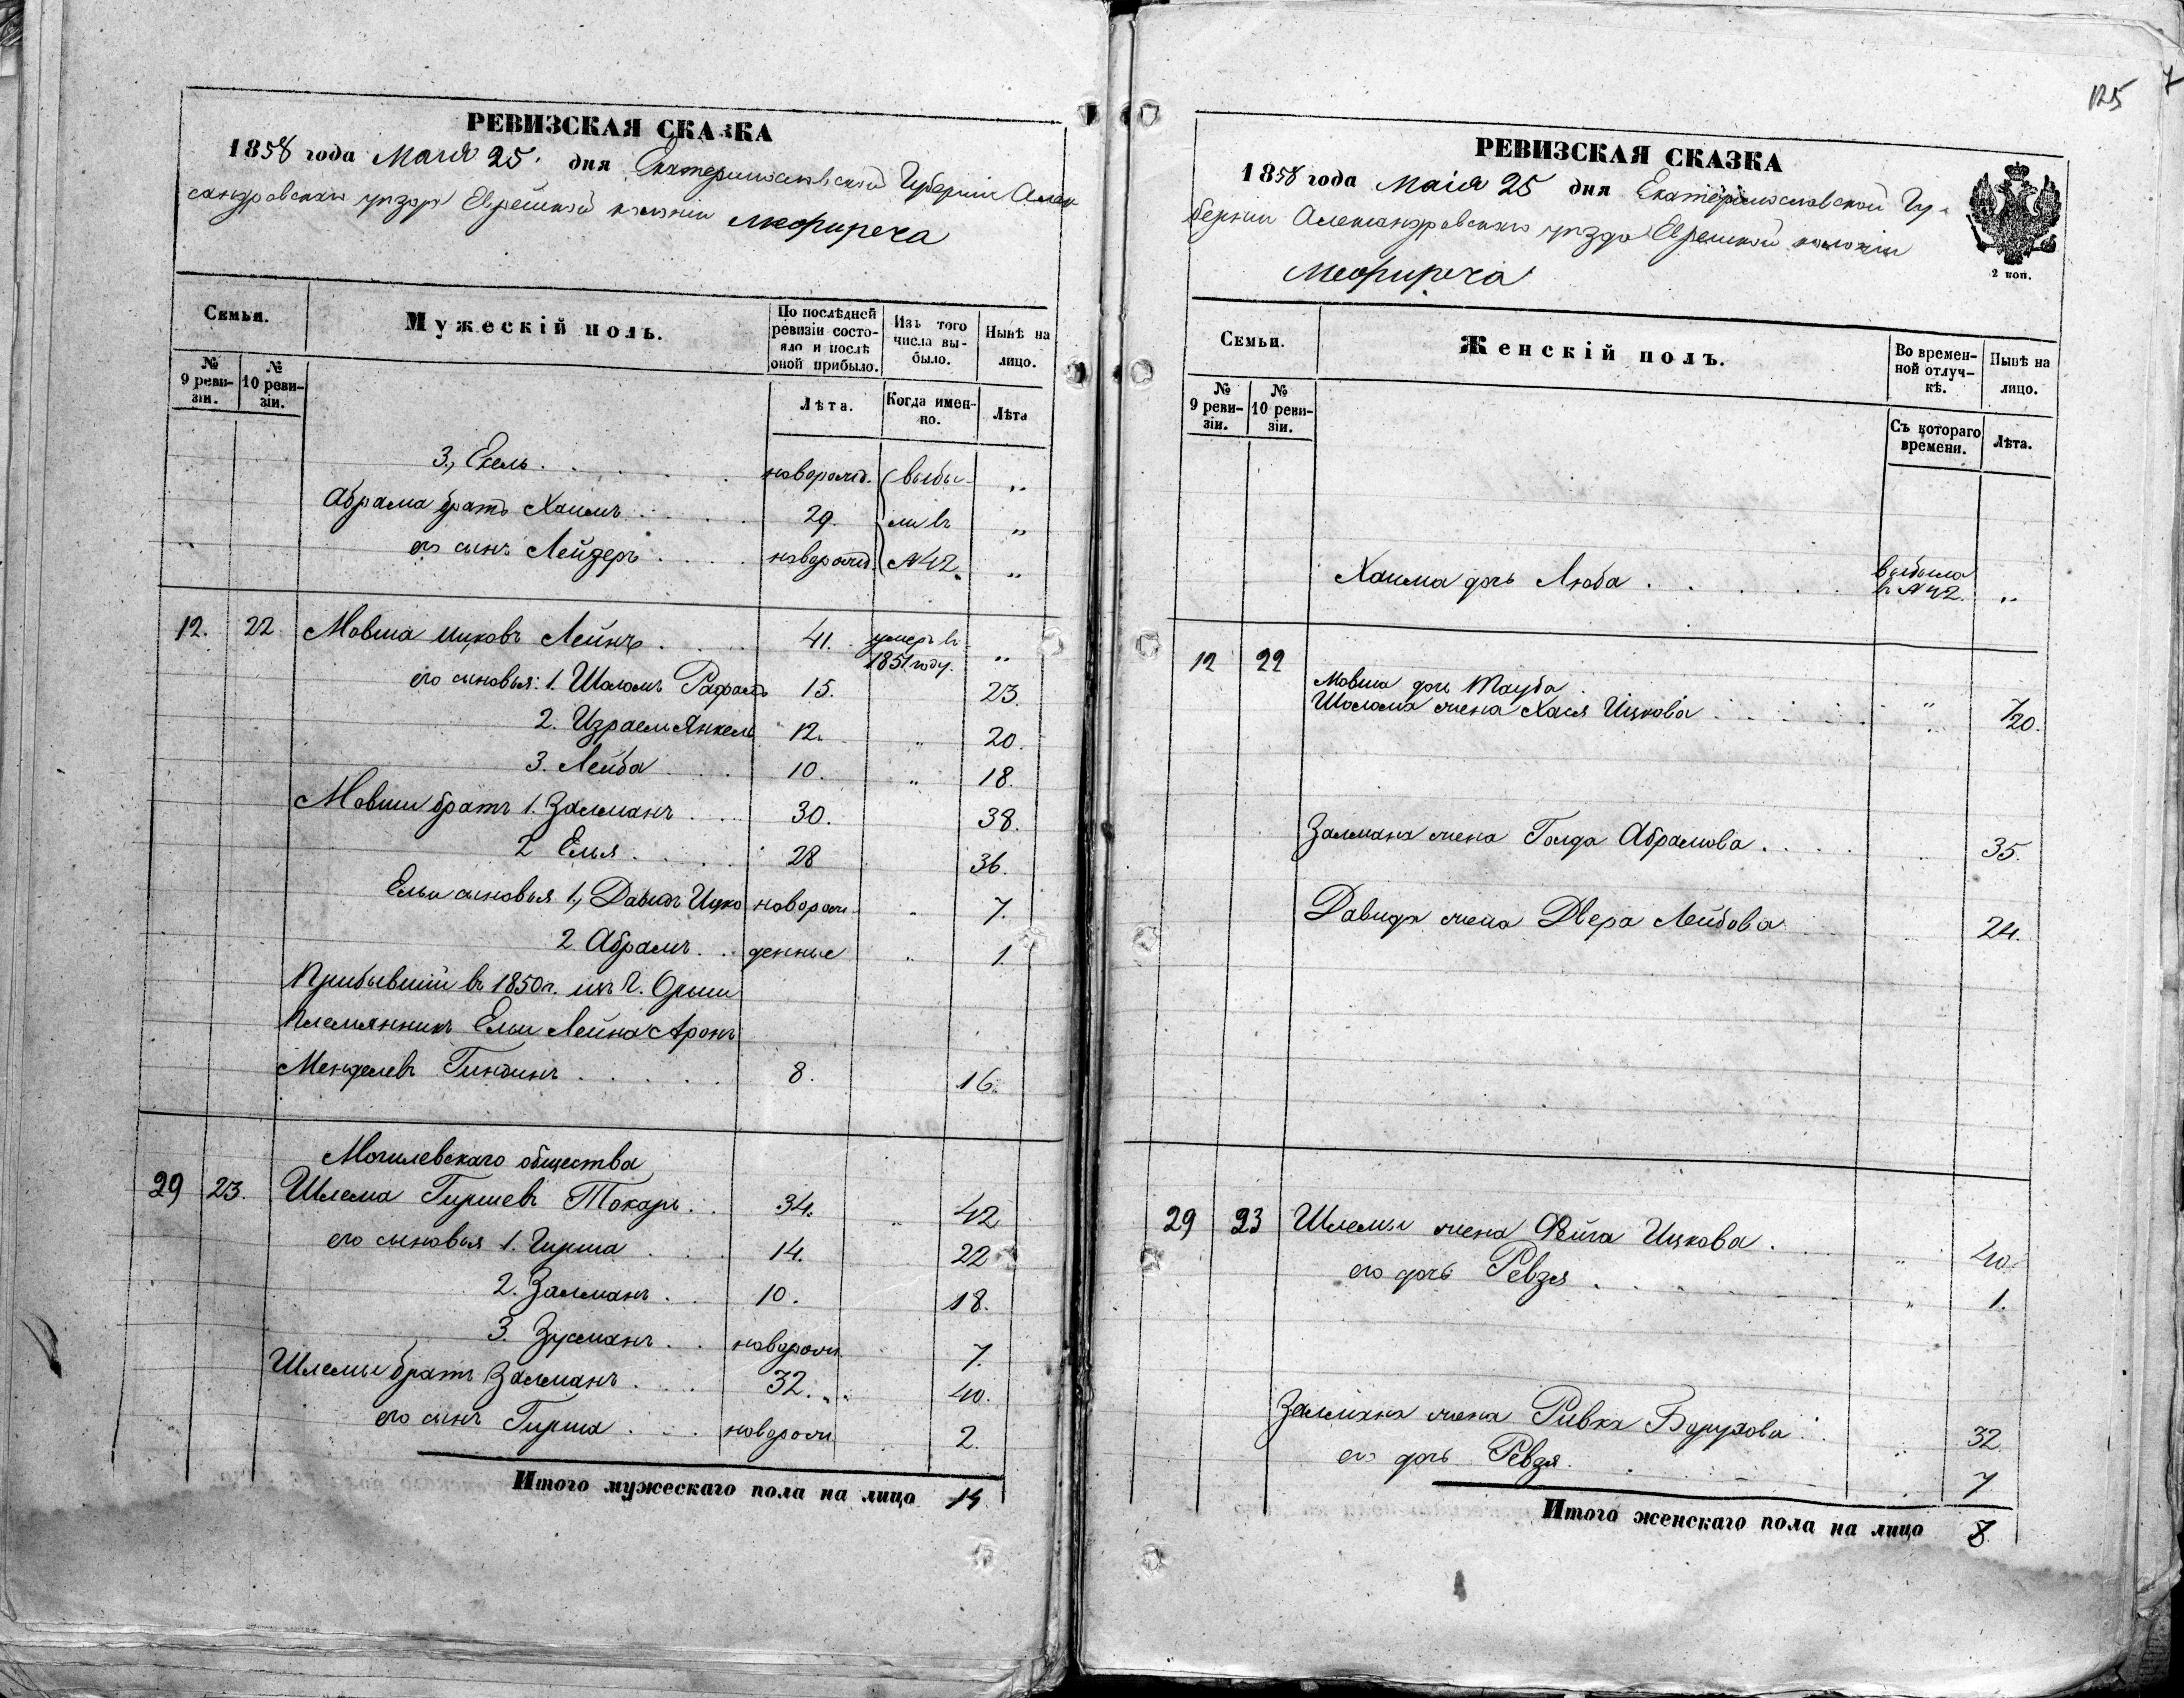 125
РЕВИЗСКАЯ СКАЗКА
1858 года Маия 25 дня Екатеринославской Губернiи Алек
сандровскаго уѣзда Еврейской колонiи Межиречa
Семьи.
Мужескiй полъ.
По послѣдней ревизiи состояло и послѣ оной прибыло.
Изъ того числа выбыло.
Нынѣ на лицо.
№ 9 ревизiи.
№ 10 ревизiи.
Лѣта.
Когда именно.
Лѣта
3., Ехель новорожд. выбы- „
Абрама братъ Хаимъ 29. ли въ „
его сынъ Лейзеръ новорожд. №42. „
12. 22 Мовша Ицковъ Лейнъ 41. умеръ въ 1851 году. „
его сыновья: 1. Шоломъ Рафаль 15. 23.
2. Израель Янкель 12. „ 20.
3. Лейба 10. „ 18.
Мовши братъ 1. Залманъ 30. 38.
2 Елья 28 36.
Ельи сыновья 1., Давидъ Ицко новорож- „ 7.
2. Абрамъ денные „ 1.
Прибывшiй въ 1850 г. изъ г. Орши
племянникъ Ельи Лейна Аронъ
Менделевъ Гиндинъ 8. 16.
Могилевскаго общества
29 23. Шлема Гиршевъ Токарь 34. „ 42
его сыновья 1. Гирша 14. 22
2. Залманъ 10. 18.
3. Зусманъ новорож. 7.
Шлемы братъ Залманъ 32. 40.
его сынъ Гирша новорож. 2.
Итого мужескаго пола на лицо 14
РЕВИЗСКАЯ СКАЗКА
1858 года Маiя 25 дня Екатеринославской Гу-
бернiи Александровскаго уѣзда Еврейской колонiи
Межиречa
2 коп.
Семьи.
Женскiй полъ.
Во временной отлучкѣ.
Нынѣ на лицо.
№ 9 ревизiи.
№ 10 ревизiи.
Съ котораго времени.
Лѣта.
Хаима дочь Люба выбыла в №42. „
12 22
Мовша дочь Тауба „ 7
Шолома жена Хася Ицкова „ 20.
Залмана жена Голда Абрамова 35.
Давида жена Двера Лейбова 24.
29 23 Шлемы жена Фейга Ицкова „ 40.
его дочь Ревзя „ 1.
Залмана жена Ривка Борухова 32.
его дочь Ревзя 7
Итого женскаго пола на лицо 8.